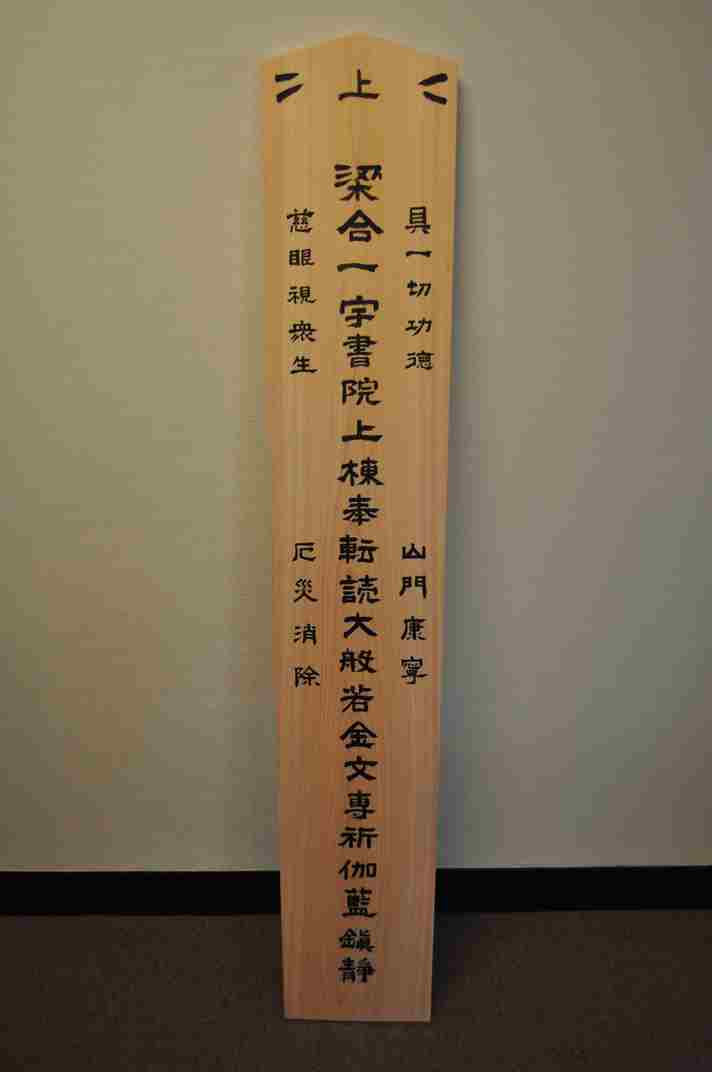 上
具一切功徳
山門康寧
梁合一宇書院上棟奉転読大般若金文専祈伽藍鎭靜
慈眼視衆生
厄災消除